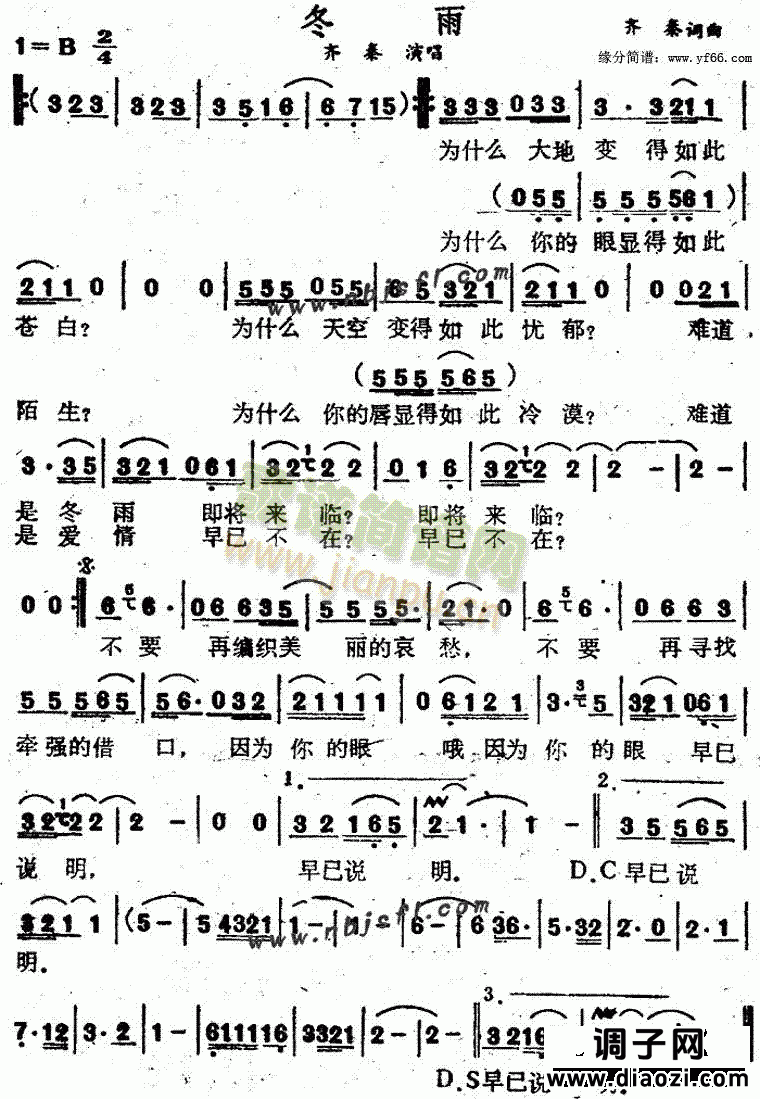 冬 雨
1=B 2/4
齐 秦 演唱
齐 秦 词曲
缘分简谱：www.yf66.com
(323 | 323 | 3516 | 6 715) 333 033 | 3· 3211
为什么 大地 变 得如此
(055 | 555561)
为什么 你的 眼显得如此
2110 | 0 0 | 555 055 | 65 321 | 2110 | 0 021
苍白？ 为什么 天空 变得如此忧郁？ 难道，
(555 565)
陌生？ 为什么 你的唇显得如此冷漠？ 难道
3·35 | 321 061 | 32 1 22 | 016 | 32 1 22 2 | 2 - | 2 -
是冬雨 即将来临？ 即将来临？
是爱情 早已不在？ 早已不在？
歌谱简谱网
www.jianpu.cn
0 0 6 5 6· | 066635 | 55555· | 21·0 | 6 5 6· | 0663
不要 再编织美 丽的哀愁， 不要 再寻找
55565 | 56·032 | 21111 1 | 06121 | 3· 3 5 | 321061
牵强的借 口， 因为你的眼 哦因为你的眼 早已
1. 2.
32 1 22 | 2 - | 0 0 | 32165 | 21· | 1 - | 35565
说明， 早已说 明。 D.C早已说
32111 | (5 - | 54321 | 1 - | 1 - | 6 - | 636· | 5·32 | 2·0 | 2·1
明。
www.nbjsfr.com
3.
7·12 | 3·2 | 1 - | 6111116 | 3321 | 2 - | 2 - | 3216
D.S早已说
调子网
www.diaozi.com